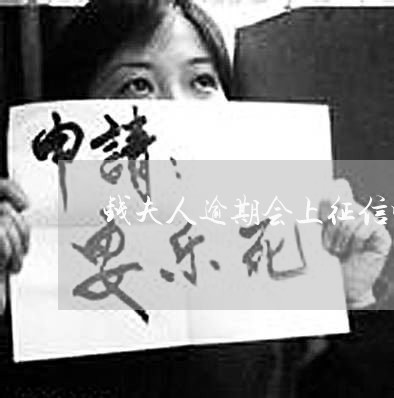 申請：
安乐死
钱夫人逾期会上征信